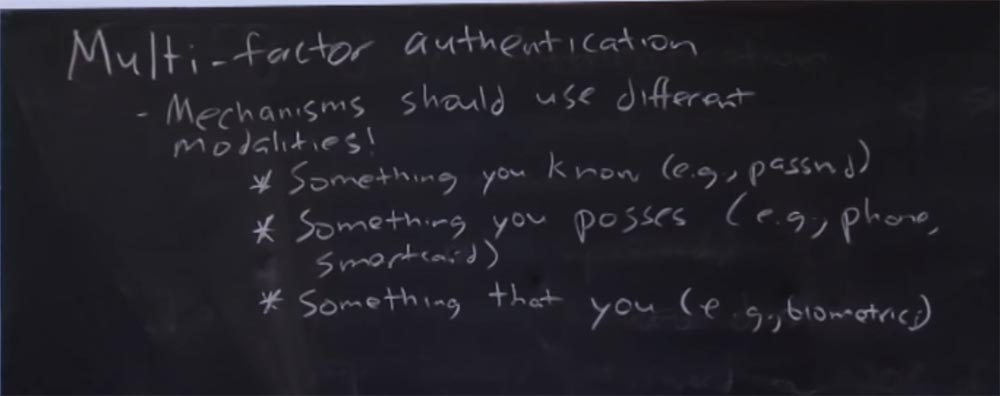 Multi-factor authentication
- Mechanisms should use different
modalities!
* Something you know (e.g., passwd)
* Something you posses (e.g., phone,
smartcard)
* Something that you (e.g., biometrics)